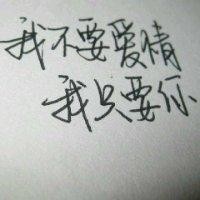 我不要爱情
我只要你